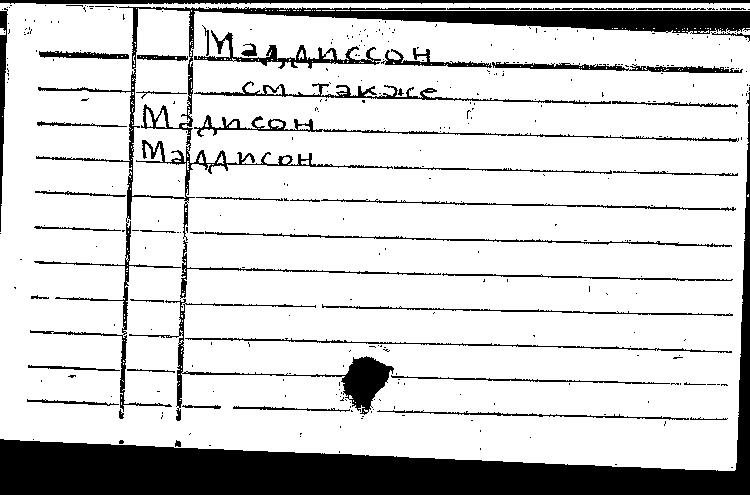 Маддиссон
см. также
Мадисон
Маддисон